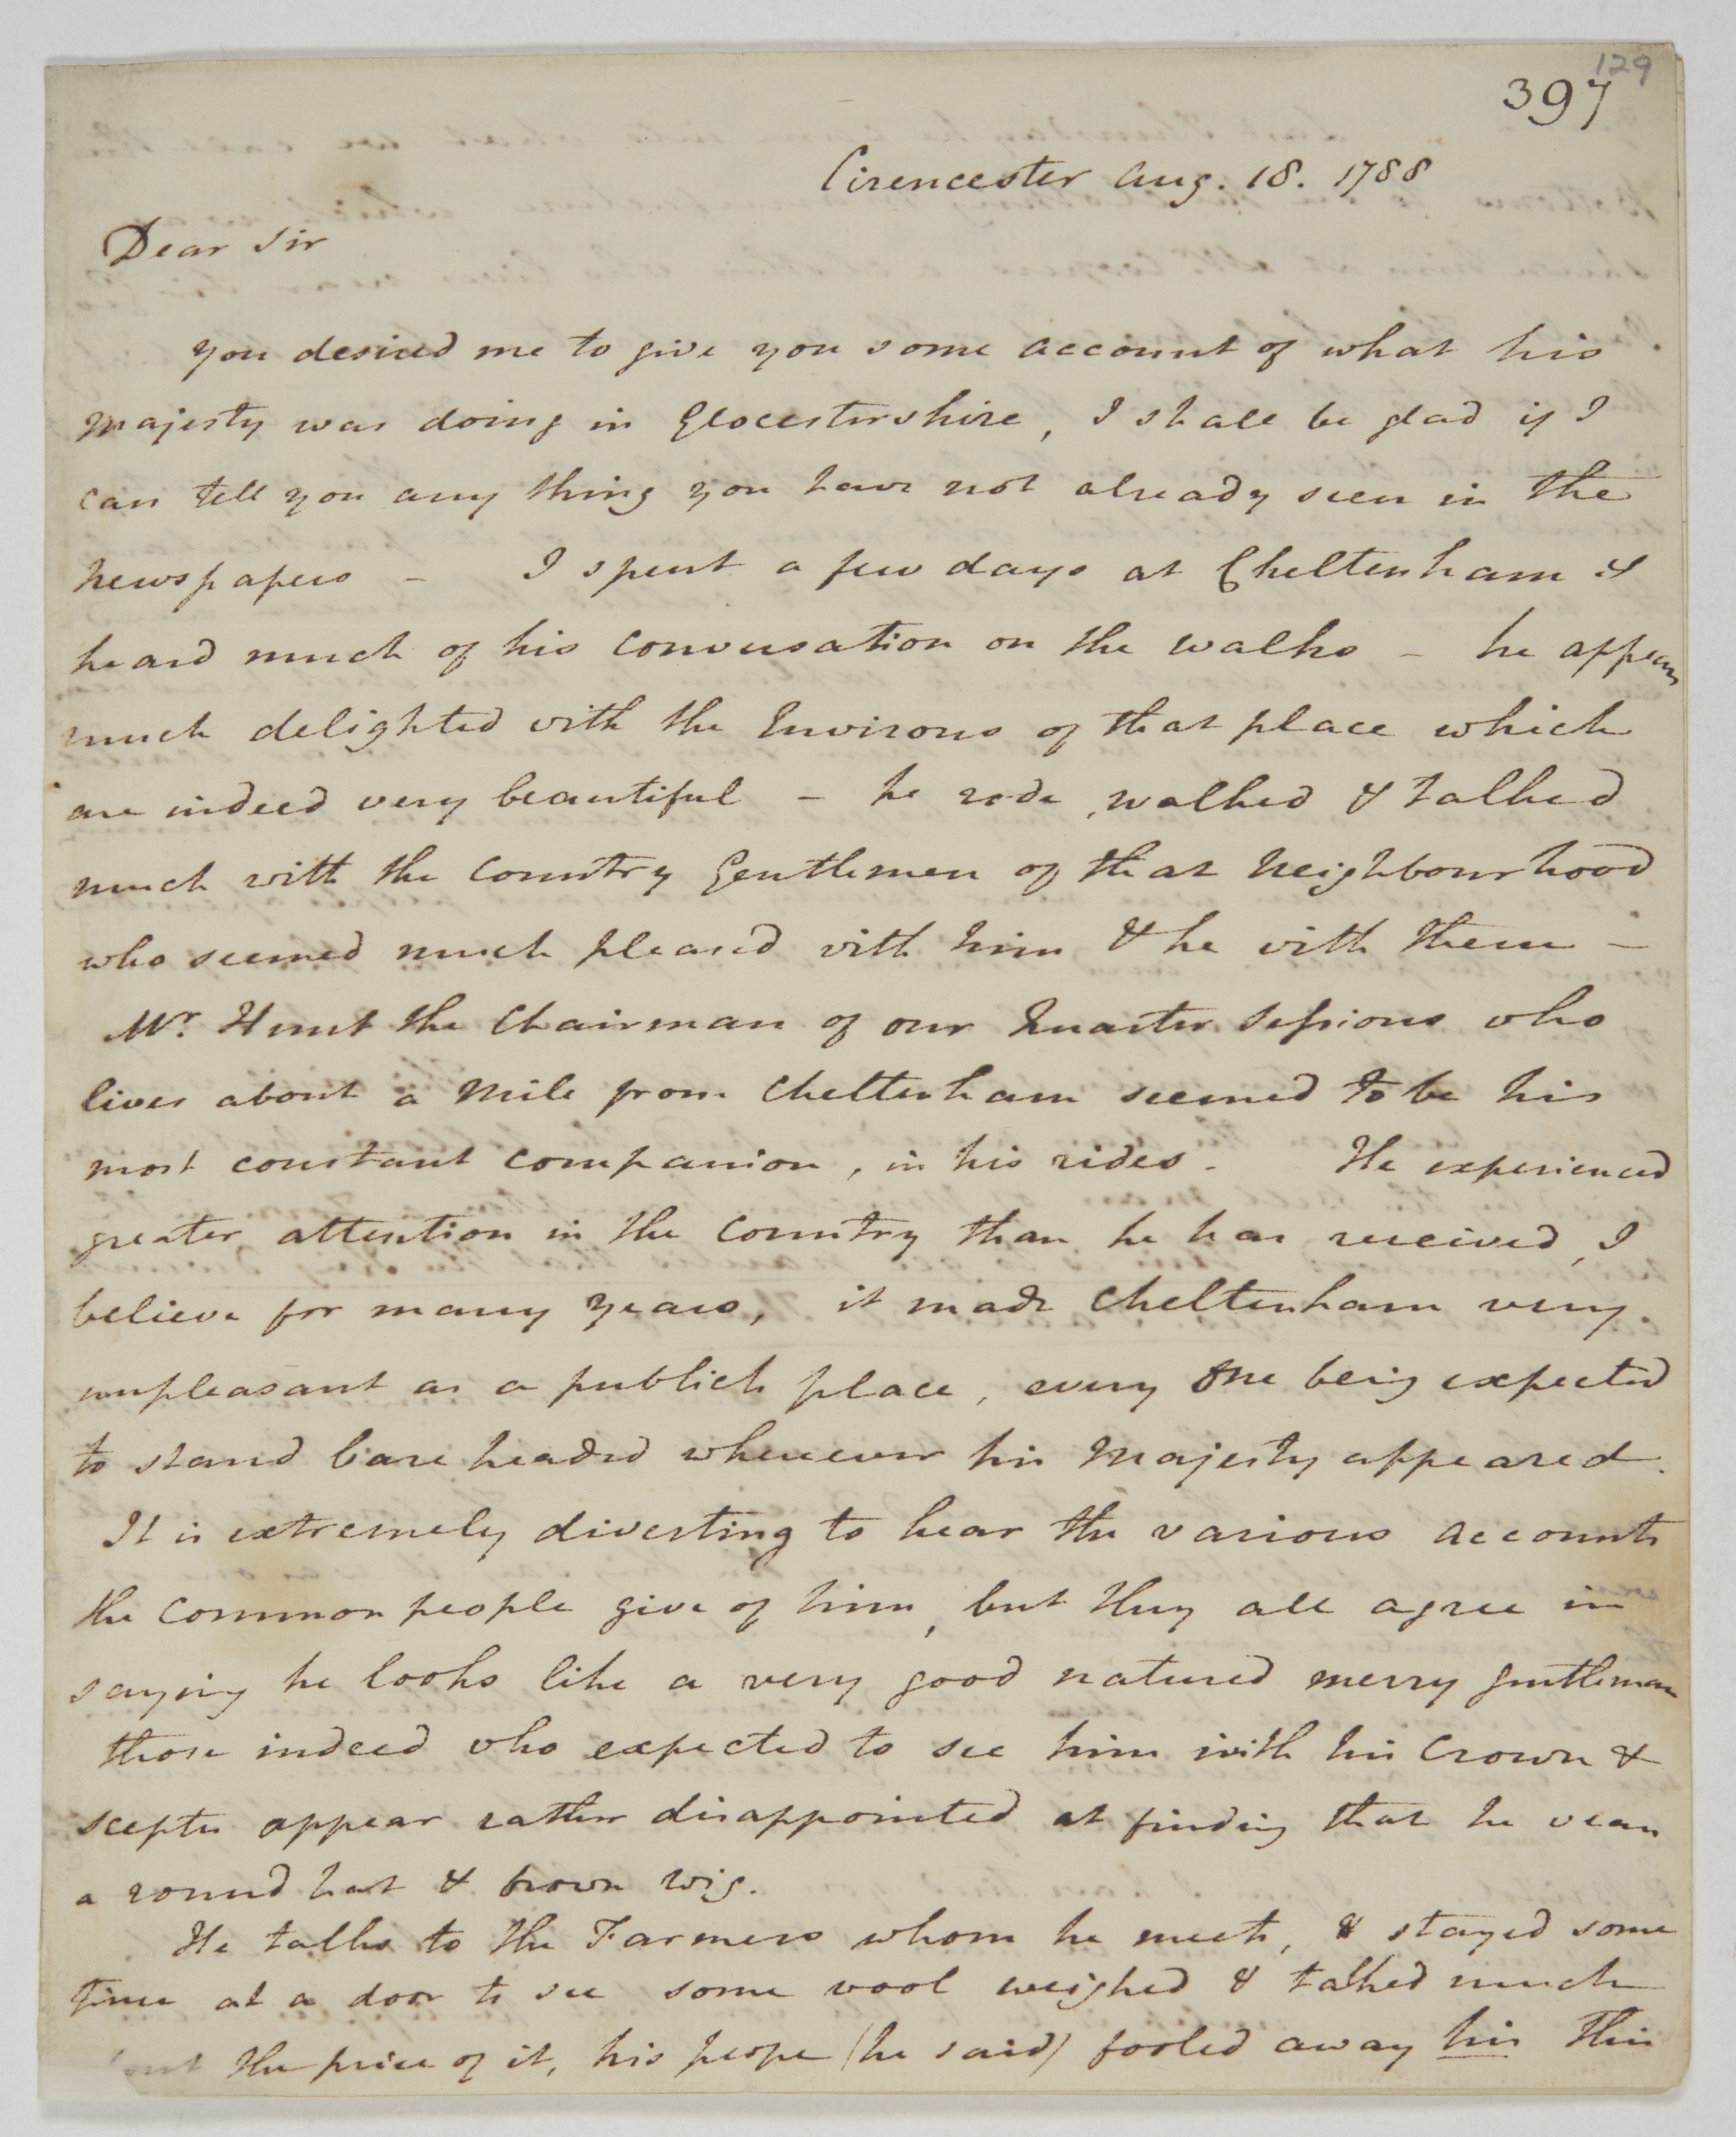 129
397
Cirencester Aug. 18. 1788
Dear Sir
you desired me to give you some account of what his
Majesty was doing in Glocestershire, I shall be glad if I
can tell you any thing you have not already seen in the
Newspapers - I spent a few days at Cheltenham &
heard much of his conversation on the walks - he appears
much delighted with the Environs of that place which
are indeed very beautiful - he rode, walked & talked
much with the Country Gentlemen of that Neighbourhood
who seemed much pleased with him & he with them -
Mr. Hunt the Chairman of our Quarter Sessions who
lives about a Mile from Cheltenham seemed to be his
most constant companion, in his rides - He experienced
greater attention in the Country than he has received, I
believe for many years, it made Cheltenham very
unpleasant as a publick place, every One being expected
to stand bare headed whenever his Majesty appeared.
It is extremely diverting to hear the various accounts
the common people give of him, but they all agree in
saying he looks like a very good natured merry gentleman
those indeed who expected to see him with his Crown &
scepter appear rather disappointed at finding that he wears
a round hat & brown wig.
He talks to the Farmers whom he meets, & stayed some
time at a door to see some wool weighed & talked much
the price of it, his peope (he said) fooled away his This